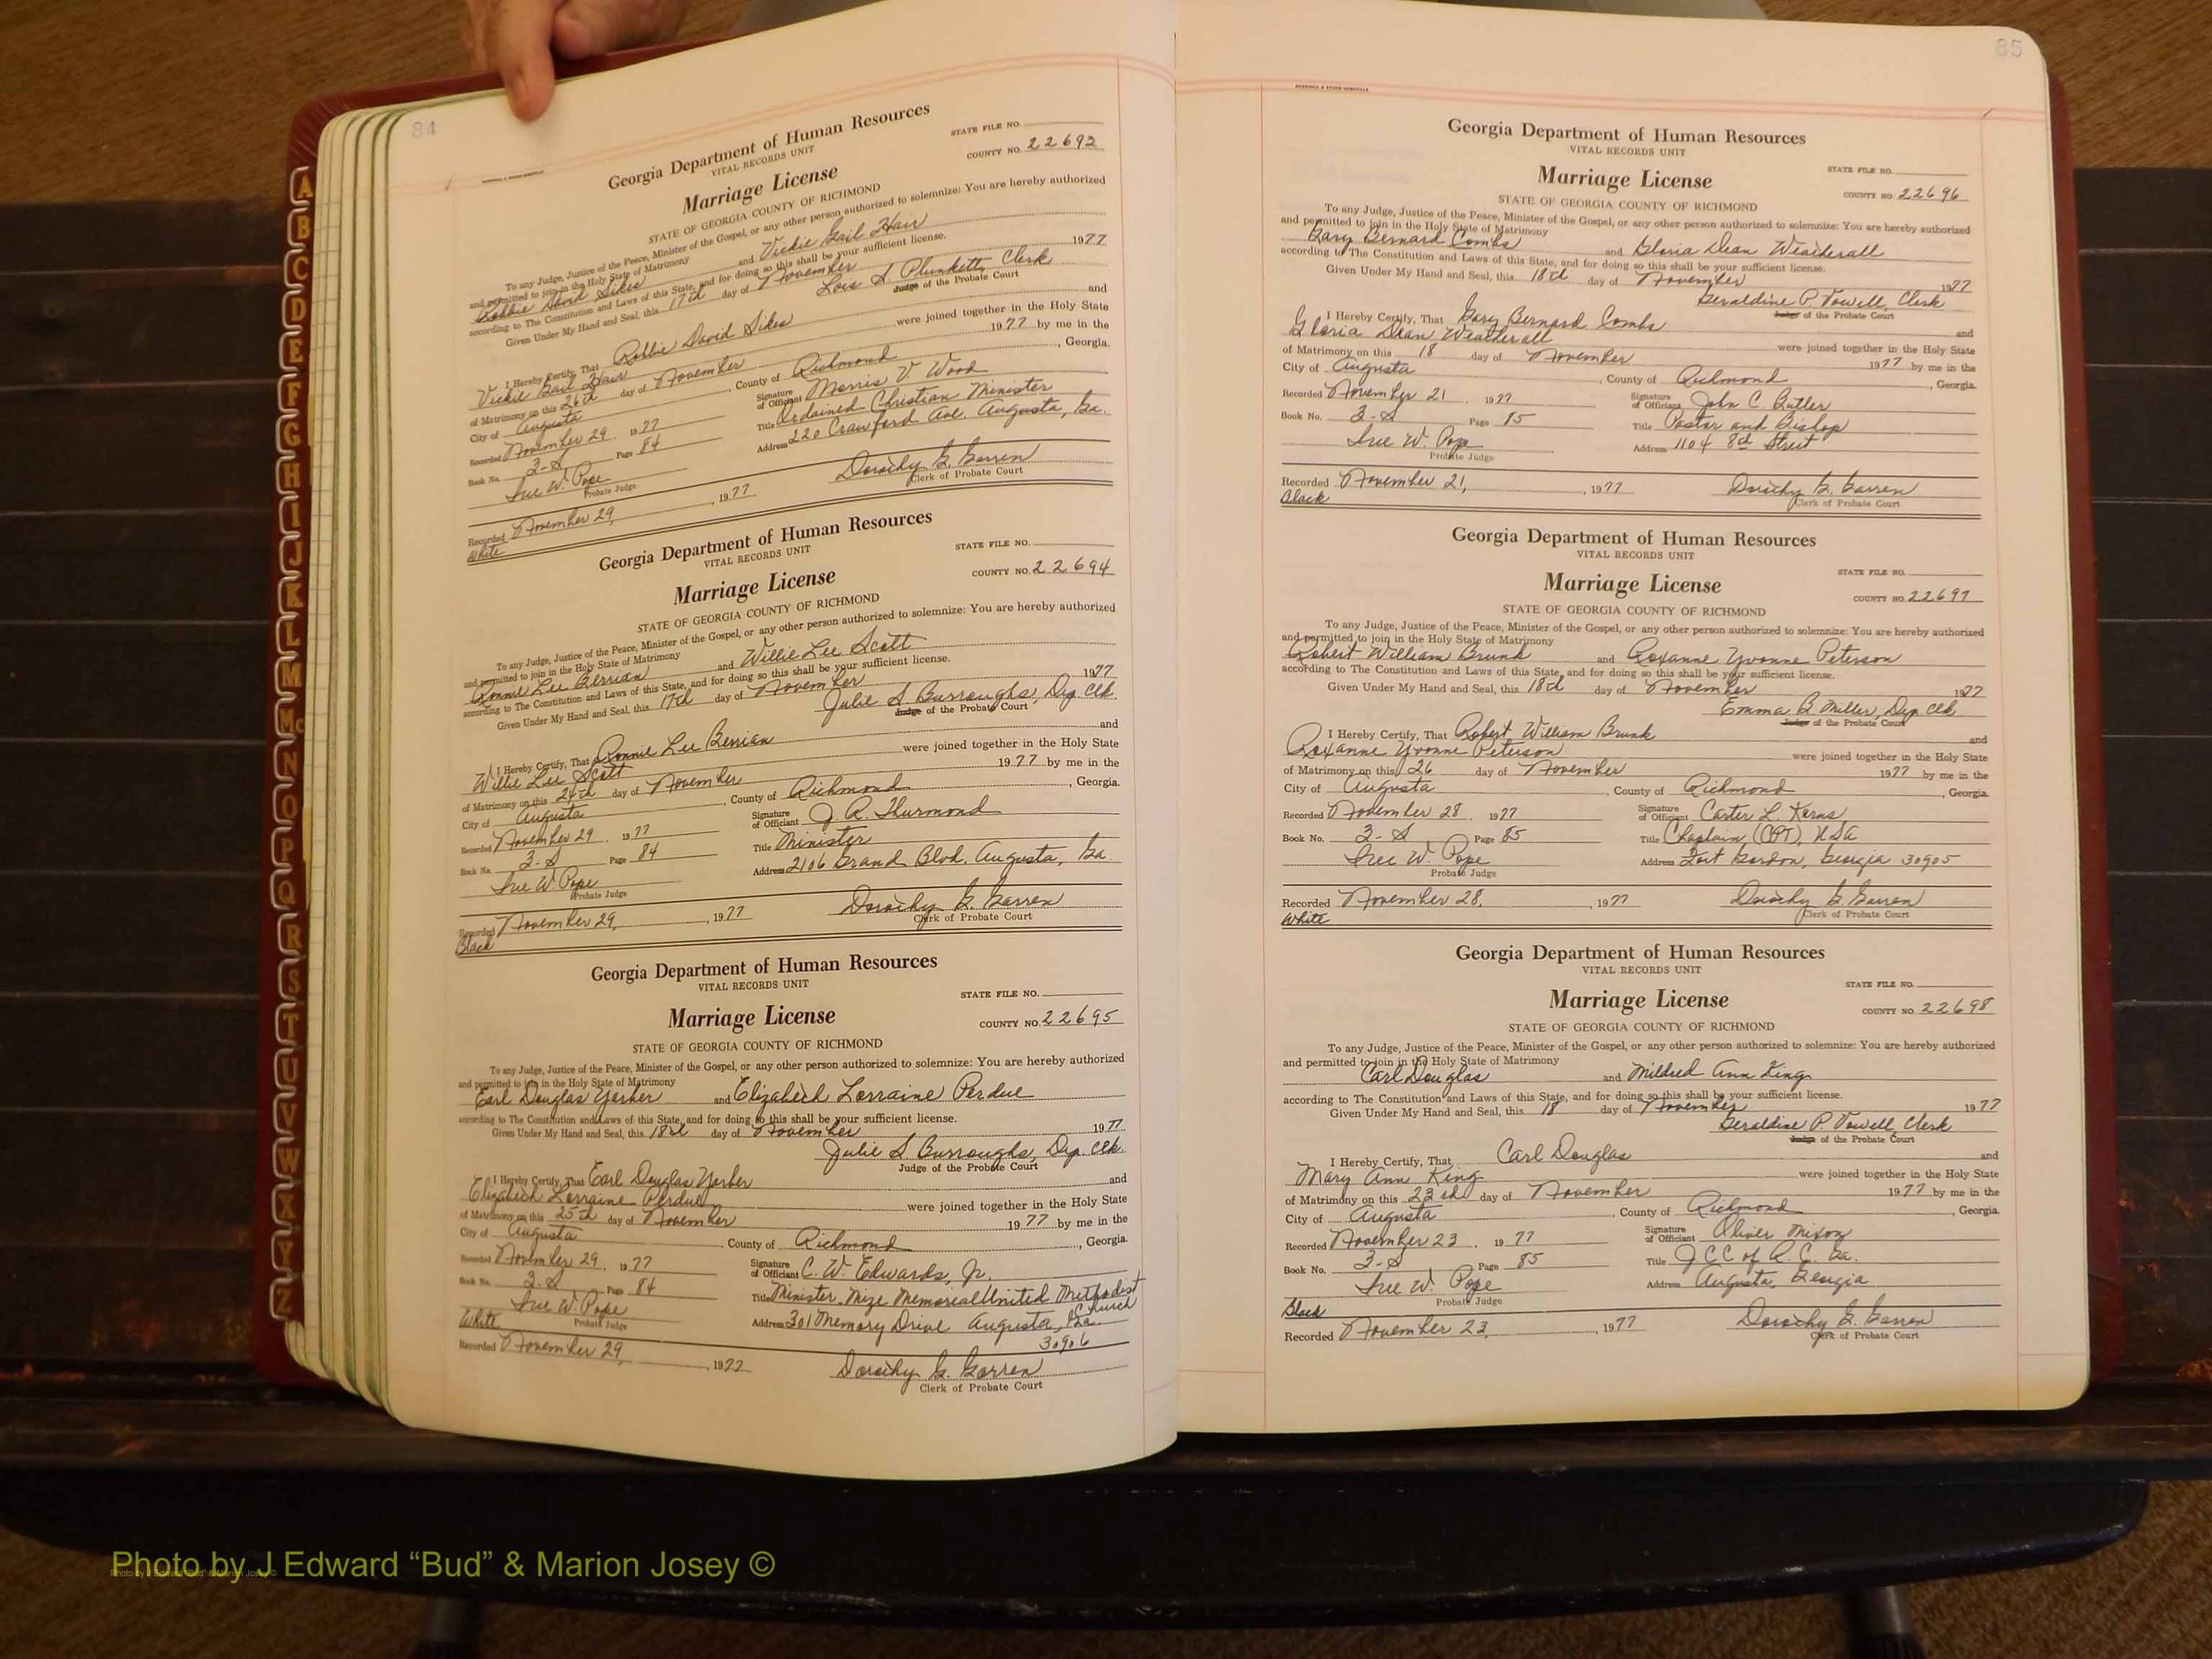 84
Georgia Department of Human Resources
VITAL RECORDS UNIT
STATE FILE NO.
COUNTY NO. 22693
Marriage License
STATE OF GEORGIA COUNTY OF RICHMOND
To any Judge, Justice of the Peace, Minister of the Gospel, or any other person authorized to solemnize: You are hereby authorized
and permitted to join in the Holy State of Matrimony
Robbie David Sikes and Vickie Gail Hair
according to The Constitution and Laws of this State, and for doing so this shall be your sufficient license.
Given Under My Hand and Seal, this 17th day of November 1977
Lois S. Plunkett, Clerk
Judge of the Probate Court
I Hereby Certify, That Robbie David Sikes and
Vickie Gail Hair were joined together in the Holy State
of Matrimony on this 26th day of November 1977 by me in the
City of Augusta, County of Richmond, Georgia.
Recorded November 29, 1977 Signature of Officiant Morris V. Wood
Book No. 3-S Page 84 Title Ordained Christian Minister
Sue W. Pope Address 220 Crawford Ave. Augusta, Ga.
Probate Judge
Recorded November 29, 1977 Dorothy G. Garren
White Clerk of Probate Court
Georgia Department of Human Resources
VITAL RECORDS UNIT
STATE FILE NO.
Marriage License
COUNTY NO. 22694
STATE OF GEORGIA COUNTY OF RICHMOND
To any Judge, Justice of the Peace, Minister of the Gospel, or any other person authorized to solemnize: You are hereby authorized
and permitted to join in the Holy State of Matrimony
Ronnie Lee Berrian and Willie Lee Scott
according to The Constitution and Laws of this State, and for doing so this shall be your sufficient license.
Given Under My Hand and Seal, this 17th day of November 1977
Julie S. Burroughs, Dep. Clk.
Judge of the Probate Court
I Hereby Certify, That Ronnie Lee Berrian and
Willie Lee Scott were joined together in the Holy State
of Matrimony on this 24th day of November 1977 by me in the
City of Augusta, County of Richmond, Georgia.
Recorded November 29, 1977 Signature of Officiant J. R. Thurmond
Book No. 3-S Page 84 Title Minister
Sue W. Pope Address 2106 Grand Blvd. Augusta, Ga.
Probate Judge
Recorded November 29, 1977 Dorothy G. Garren
Black Clerk of Probate Court
Georgia Department of Human Resources
VITAL RECORDS UNIT
STATE FILE NO.
Marriage License
COUNTY NO. 22695
STATE OF GEORGIA COUNTY OF RICHMOND
To any Judge, Justice of the Peace, Minister of the Gospel, or any other person authorized to solemnize: You are hereby authorized
and permitted to join in the Holy State of Matrimony
Earl Douglas Yarber and Elizabeth Lorraine Perdue
according to The Constitution and Laws of this State, and for doing so this shall be your sufficient license.
Given Under My Hand and Seal, this 18th day of November 1977
Julie S. Burroughs, Dep. Clk.
Judge of the Probate Court
I Hereby Certify, That Earl Douglas Yarber and
Elizabeth Lorraine Perdue were joined together in the Holy State
of Matrimony on this 25th day of November 1977 by me in the
City of Augusta, County of Richmond, Georgia.
Recorded November 29, 1977 Signature of Officiant C. W. Edwards, Jr.
Book No. 3-S Page 84 Title Minister, Mize Memorial United Methodist Church
Sue W. Pope Address 301 Memory Drive Augusta, Ga.
White Probate Judge 30906
Recorded November 29, 1977 Dorothy G. Garren
Clerk of Probate Court
85
Georgia Department of Human Resources
VITAL RECORDS UNIT
STATE FILE NO.
Marriage License
COUNTY NO. 22696
STATE OF GEORGIA COUNTY OF RICHMOND
To any Judge, Justice of the Peace, Minister of the Gospel, or any other person authorized to solemnize: You are hereby authorized
and permitted to join in the Holy State of Matrimony
Gary Bernard Combs and Gloria Dean Weatherall
according to The Constitution and Laws of this State, and for doing so this shall be your sufficient license.
Given Under My Hand and Seal, this 18th day of November 1977
Geraldine P. Vowell, Clerk
Judge of the Probate Court
I Hereby Certify, That Gary Bernard Combs and
Gloria Dean Weatherall were joined together in the Holy State
of Matrimony on this 18 day of November 1977 by me in the
City of Augusta, County of Richmond, Georgia.
Recorded November 21, 1977 Signature of Officiant John C. Butler
Book No. 3-S Page 85 Title Pastor and Bishop
Sue W. Pope Address 1104 8th Street
Probate Judge
Recorded November 21, 1977 Dorothy G. Garren
Black Clerk of Probate Court
Georgia Department of Human Resources
VITAL RECORDS UNIT
STATE FILE NO.
Marriage License
COUNTY NO. 22697
STATE OF GEORGIA COUNTY OF RICHMOND
To any Judge, Justice of the Peace, Minister of the Gospel, or any other person authorized to solemnize: You are hereby authorized
and permitted to join in the Holy State of Matrimony
Robert William Brunk and Roxanne Yvonne Peterson
according to The Constitution and Laws of this State, and for doing so this shall be your sufficient license.
Given Under My Hand and Seal, this 18th day of November 1977
Emma B. Miller, Dep Clk
Judge of the Probate Court
I Hereby Certify, That Robert William Brunk and
Roxanne Yvonne Peterson were joined together in the Holy State
of Matrimony on this 26 day of November 1977 by me in the
City of Augusta, County of Richmond, Georgia.
Recorded November 28, 1977 Signature of Officiant Carter L. Kerns
Book No. 3-S Page 85 Title Chaplain (CPT), USA
Sue W. Pope Address Fort Gordon, Georgia 30905
Probate Judge
Recorded November 28, 1977 Dorothy G. Garren
White Clerk of Probate Court
Georgia Department of Human Resources
VITAL RECORDS UNIT
STATE FILE NO.
Marriage License
COUNTY NO. 22698
STATE OF GEORGIA COUNTY OF RICHMOND
To any Judge, Justice of the Peace, Minister of the Gospel, or any other person authorized to solemnize: You are hereby authorized
and permitted to join in the Holy State of Matrimony
Carl Douglas and Mildred Ann King
according to The Constitution and Laws of this State, and for doing so this shall be your sufficient license.
Given Under My Hand and Seal, this 18 day of November 1977
Geraldine P. Vowell, Clerk
Judge of the Probate Court
I Hereby Certify, That Carl Douglas and
Mary Ann King were joined together in the Holy State
of Matrimony on this 23rd day of November 1977 by me in the
City of Augusta, County of Richmond, Georgia.
Recorded November 23, 1977 Signature of Officiant Oliver Mixon
Book No. 3-S Page 85 Title J C C of R. C. Ga.
Sue W. Pope Address Augusta, Georgia
Black Probate Judge
Recorded November 23, 1977 Dorothy G. Garren
Clerk of Probate Court
A
B
C
D
E
F
G
H
I
J
K
L
M
Mc
N
O
P
Q
R
S
T
U
V
W
X
Y
Z
Photo by J Edward “Bud” & Marion Josey ©
Photo by J Edward "Bud" & Marion Josey ©